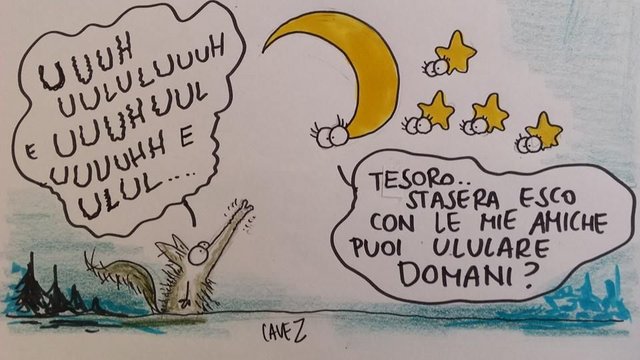 UUUH
UULULUUUH
E UUUHUUL
UUUUHH E
ULUL....
TESORO..
STASERA ESCO
CON LE MIE AMICHE
PUOI ULULARE
DOMANI?
CAVEZ